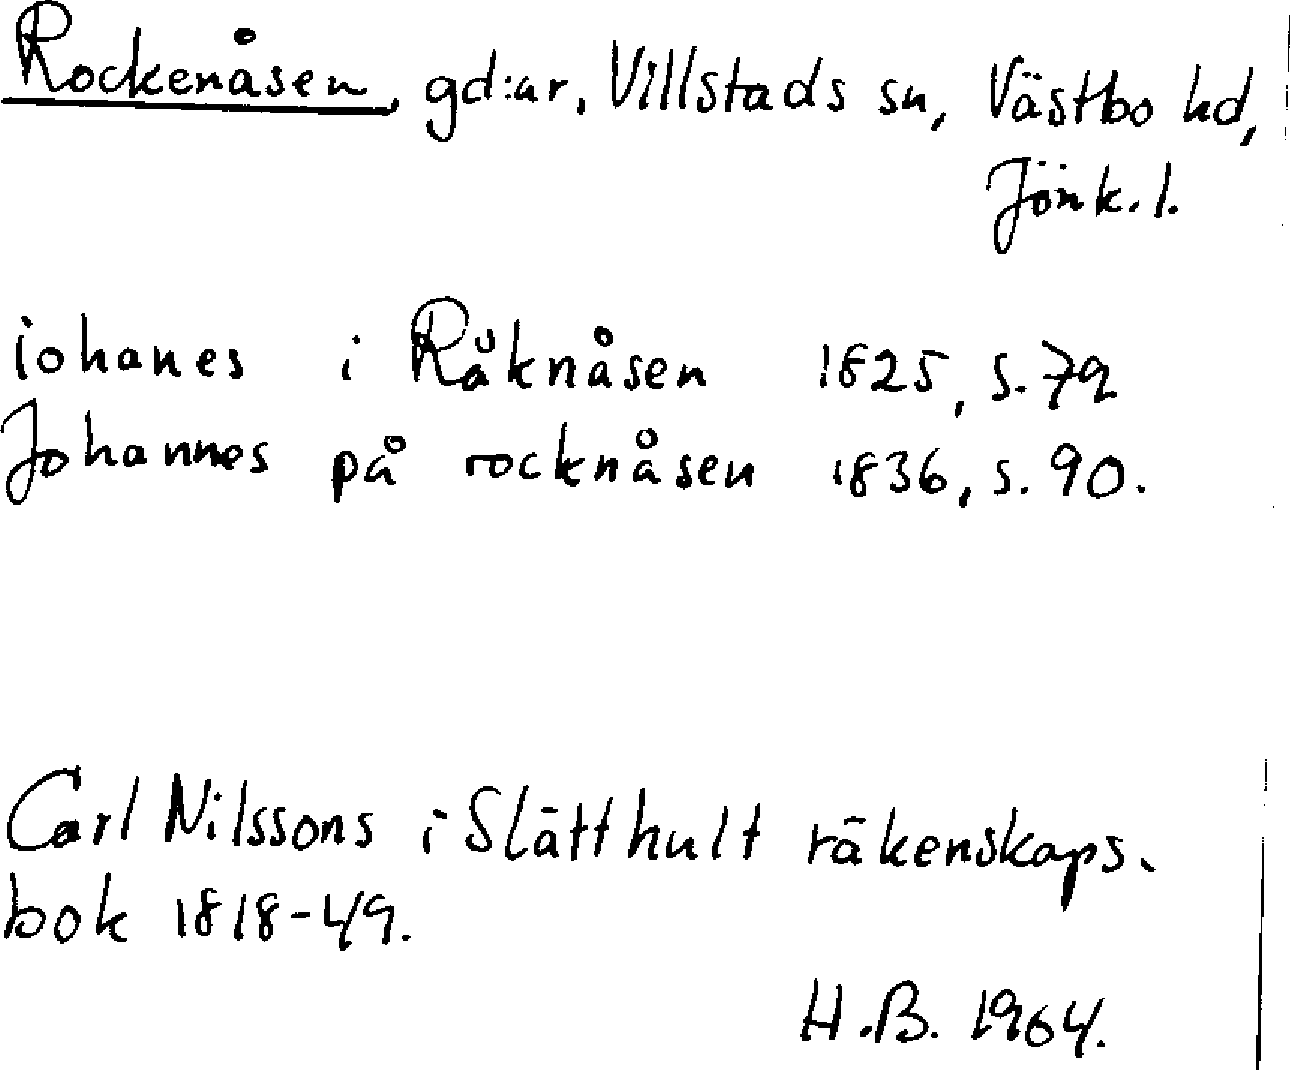 Rockenåsen, gd:ar, Villstads sn, Västbo hd,
Jönk. l.
iohanes i Råknåsen 1825, s. 79
Johannes på rocknåsen 1836, s. 90.
Carl Nilssons i Slätthult räkenskaps-
bok 1818-49.
H.B. 1964.